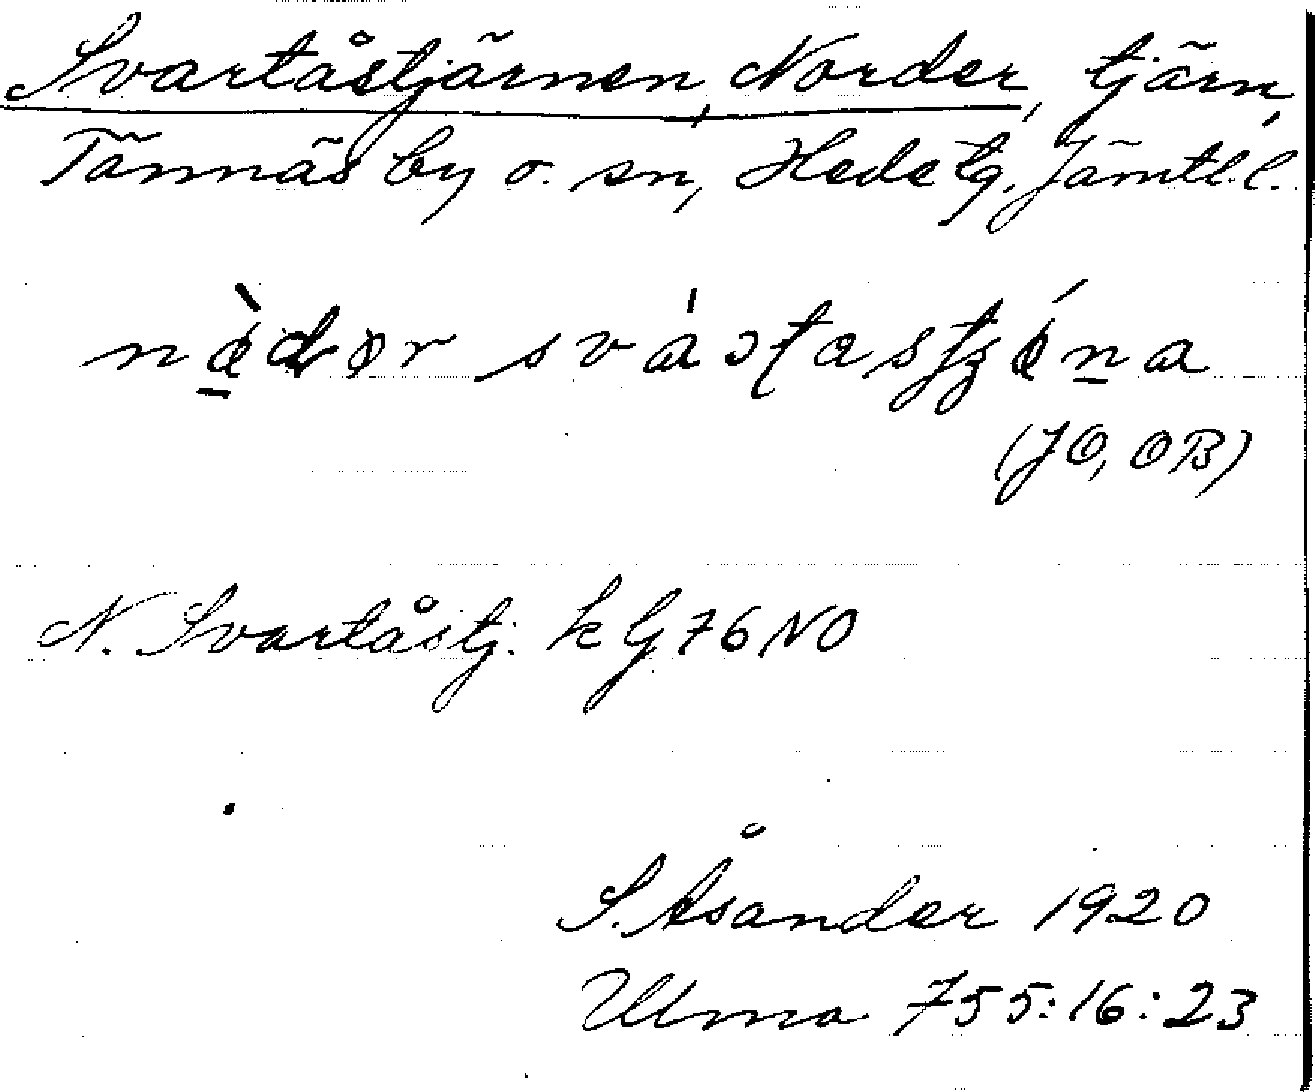 Svartåstjärnen, Norder, tjärn,
Tännäs by o. sn, Hede tg, Jämtl. l.
(JO, OB)
N. Svartåstj. kG76NO
S. Åsander 1920
Ulma 755:16:23